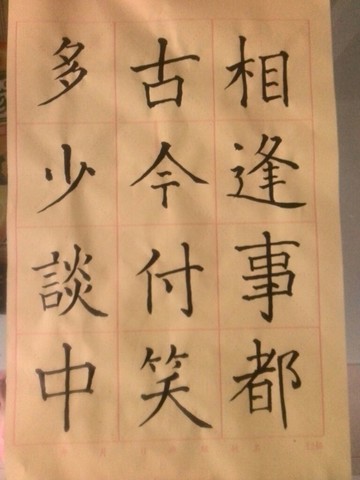 相逢事都
古今付笑
多少談中